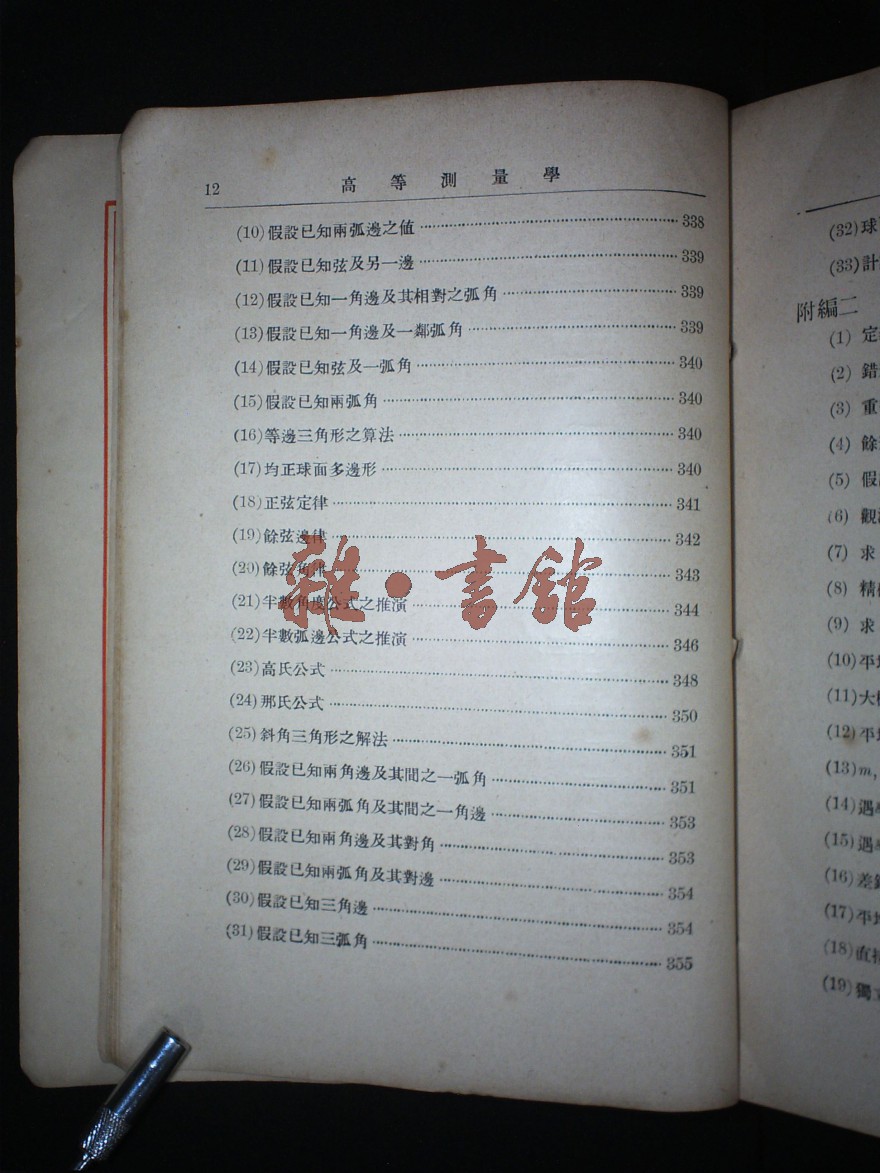 12 高等測量學
(10)假設已知兩弧邊之值……338
(11)假設已知弦及另一邊……339
(12)假設已知一角邊及其相對之弧角……339
(13)假設已知一角邊及一鄰弧角……339
(14)假設已知弦及一弧角……340
(15)假設已知兩弧角……340
(16)等邊三角形之算法……340
(17)均正球面多邊形……340
(18)正弦定律……341
(19)餘弦邊律……342
(20)餘弦角律……343
(21)半數角度公式之推演……344
(22)半數弧邊公式之推演……346
(23)高氏公式……348
(24)那氏公式……350
(25)斜角三角形之解法……351
(26)假設已知兩角邊及其間之一弧角……351
(27)假設已知兩弧角及其間之一角邊……353
(28)假設已知兩角邊及其對角……353
(29)假設已知兩弧角及其對邊……354
(30)假設已知三角邊……354
(31)假設已知三弧角……355
雜·書館
(32)球
(33)計
附編二
(1) 定
(2) 錯
(3) 重
(4) 餘
(5) 假
(6) 觀
(7) 求
(8) 精
(9) 求
(10)平
(11)大
(12)平
(13)m,
(14)遇
(15)遇
(16)差
(17)平
(18)直
(19)獨